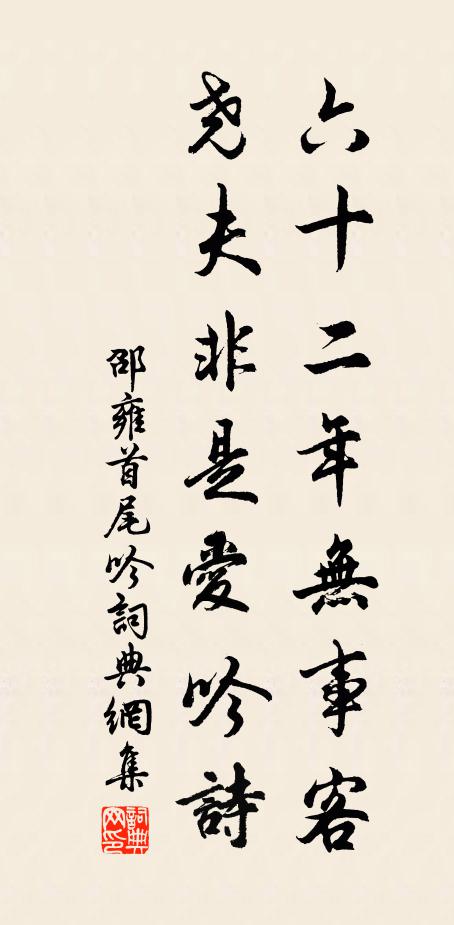 六十二年無事客
尧夫非是愛吟詩
邵雍首尾吟詞典網集
詞典网印